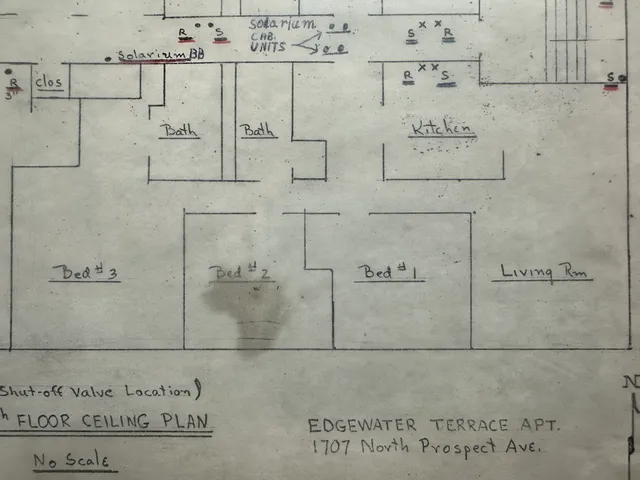 Solarium
CAB.
UNITS
R S
S R
Solarium BB
R
S
clos
R S
S
Bath
Bath
Kitchen
Bed #3
Bed #2
Bed #1
Living Rm
Shut-off Valve Location)
h FLOOR CEILING PLAN
No Scale
EDGEWATER TERRACE APT.
1707 North Prospect Ave.
N